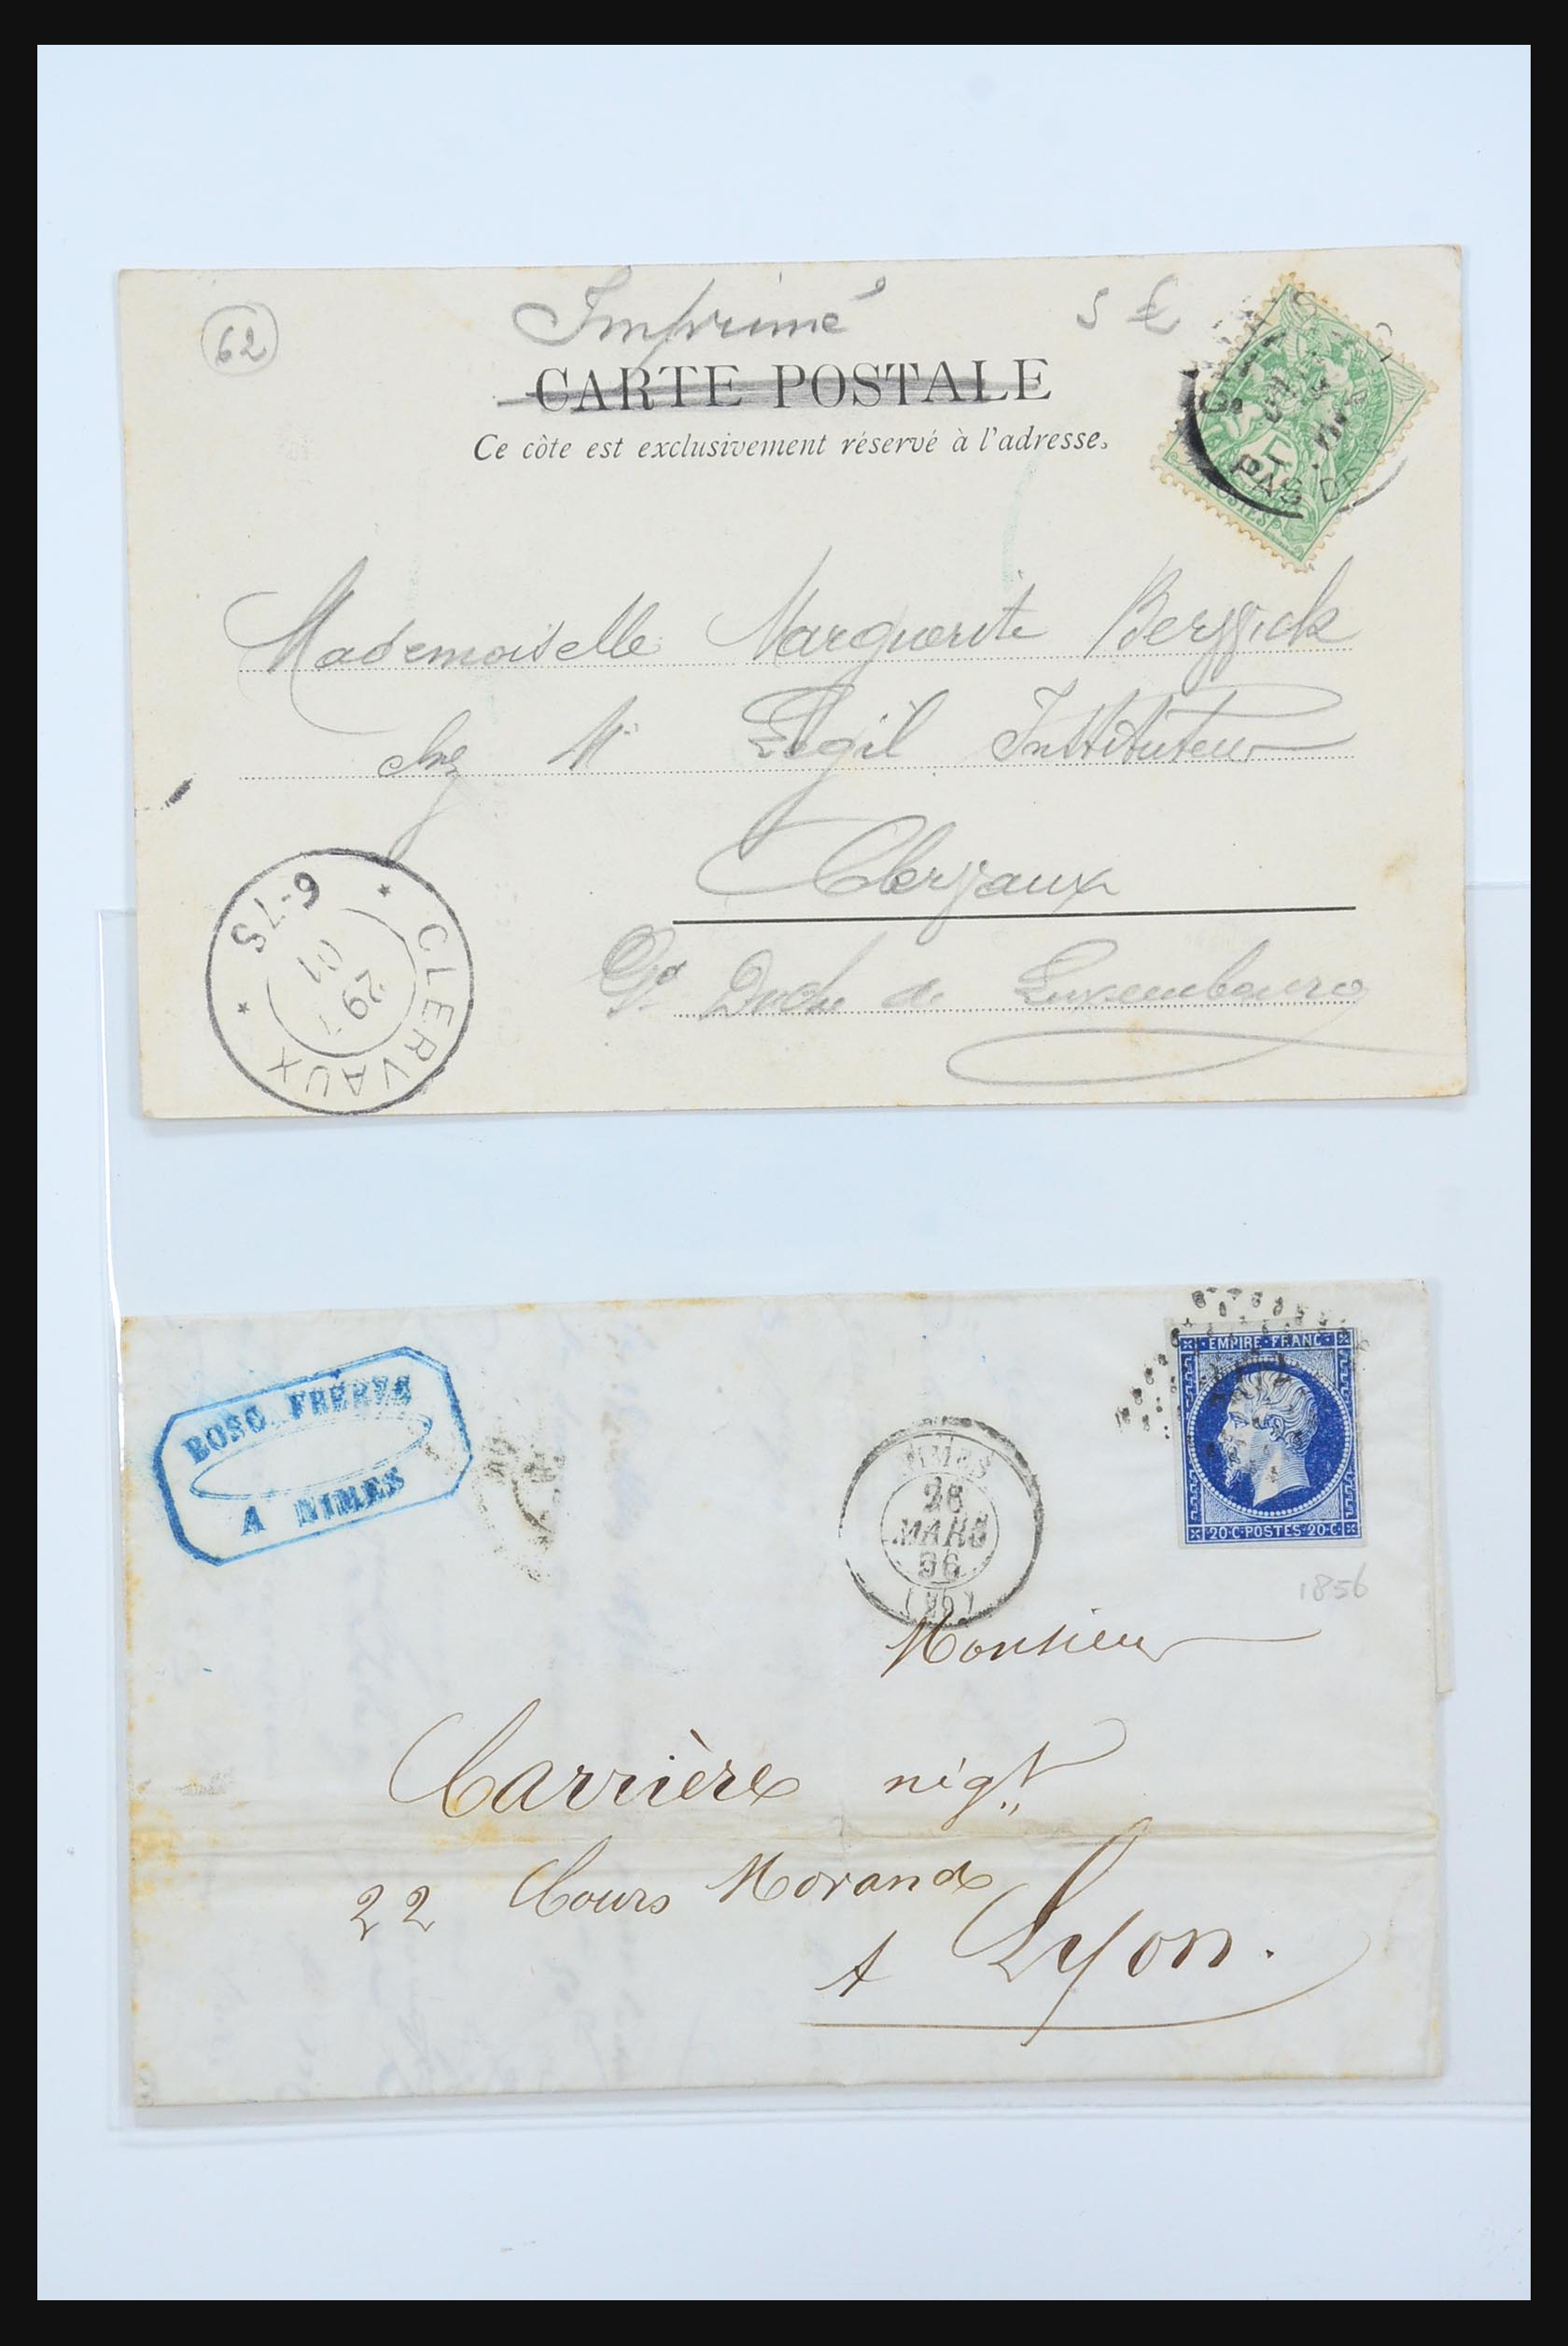 62
Imprimé
5 €
CARTE POSTALE
Ce côte est exclusivement réservé à l'adresse.
PAS
5
POSTES
Mademoiselle Marguerite
chez Mr Instituteur
Clerjaux
Gd Duché de Luxembourg
CLERVAUX
29
01
6-7S
BOSC FRÉRES
A NIMES
NIMES
28
MARS
56
EMPIRE FRANC
20·C·POSTES·20·C
1856
Monsieur
Carrière négt
22 Cours Morand
A Lyon.